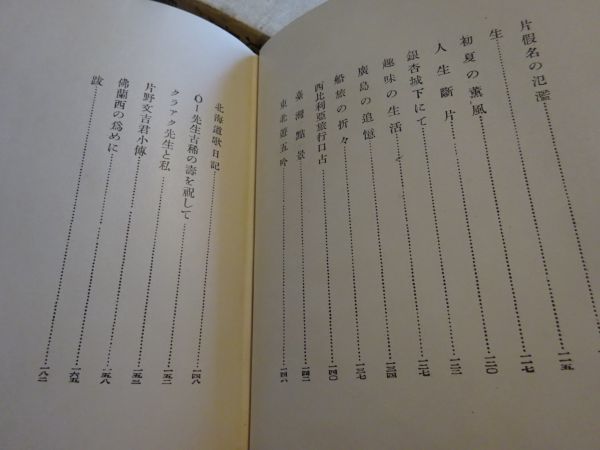 片假名の氾濫 一一五
生 一一七
初夏の薫風 一二〇
人生斷片 一二三
銀杏城下にて 一二七
趣味の生活 一三四
廣島の追憶 一三七
船旅の折々 一四〇
西比利亞旅行口占 一四〇
臺灣點景 一四二
東北遊五吟 一四六
北海道歌日記 一四八
O—先生古稀の壽を祝して 一五二
クラアク先生と私 一五三
片野文吉君小傳 一五八
佛蘭西の爲めに 一六五
跋 一八二